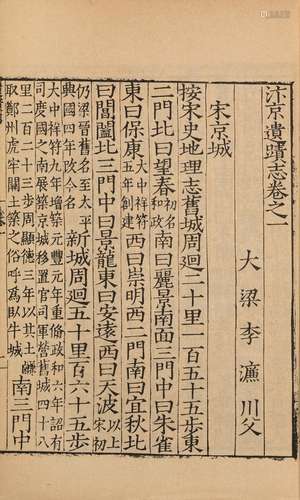 汴京遺蹟志卷之一
大梁李濂川父
宋京城
按宋史地理志舊城周迴二十里一百五十五步東
二門北曰望春初名和政南曰麗景南面三門中曰朱雀
東曰保康大中祥符五年創建西曰崇明西二門南曰宜秋北
曰閶闔北三門中曰景龍東曰安遠西曰天波以上宋初
仍梁晉舊名至太平興國四年改今名新城周迴五十里百六十五步
大中祥符九年增築元豐元年重修政和六年詔有司度國之南展築京城移置官司軍營舊城四十八
里二百二十步周顯德三年以其土鹻取鄭州虎牢關土築之俗呼為臥牛城南三門中